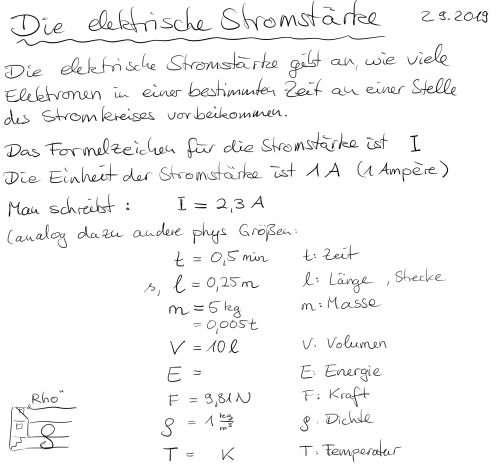 Die elektrische Stromstärke 2 9.2019
Die elektrische Stromstärke gibt an, wie viele
Elektronen in einer bestimmten Zeit an einer Stelle
des Stromkreises vorbeikommen.
Das Formelzeichen für die Stromstärke ist I
Die Einheit der Stromstärke ist 1 A (1 Ampère)
Man schreibt: I = 2,3 A
(analog dazu andere phys Größen:
t = 0,5 min t: Zeit
s, l = 0,25 m l: Länge, Strecke
m = 5 kg m: Masse
= 0,005 t
V = 10 l V: Volumen
E = E: Energie
F = 9,81 N F: Kraft
"Rho" ρ = 1 kg/m³ ρ: Dichte
ρ
T = K T: Temperatur